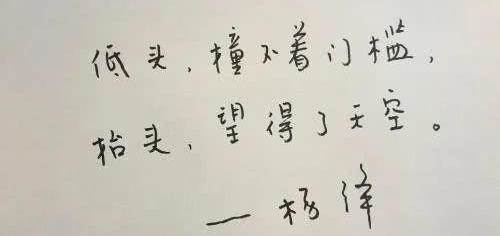 低头，撞不着门槛，
抬头，望得了天空。
— 杨绛